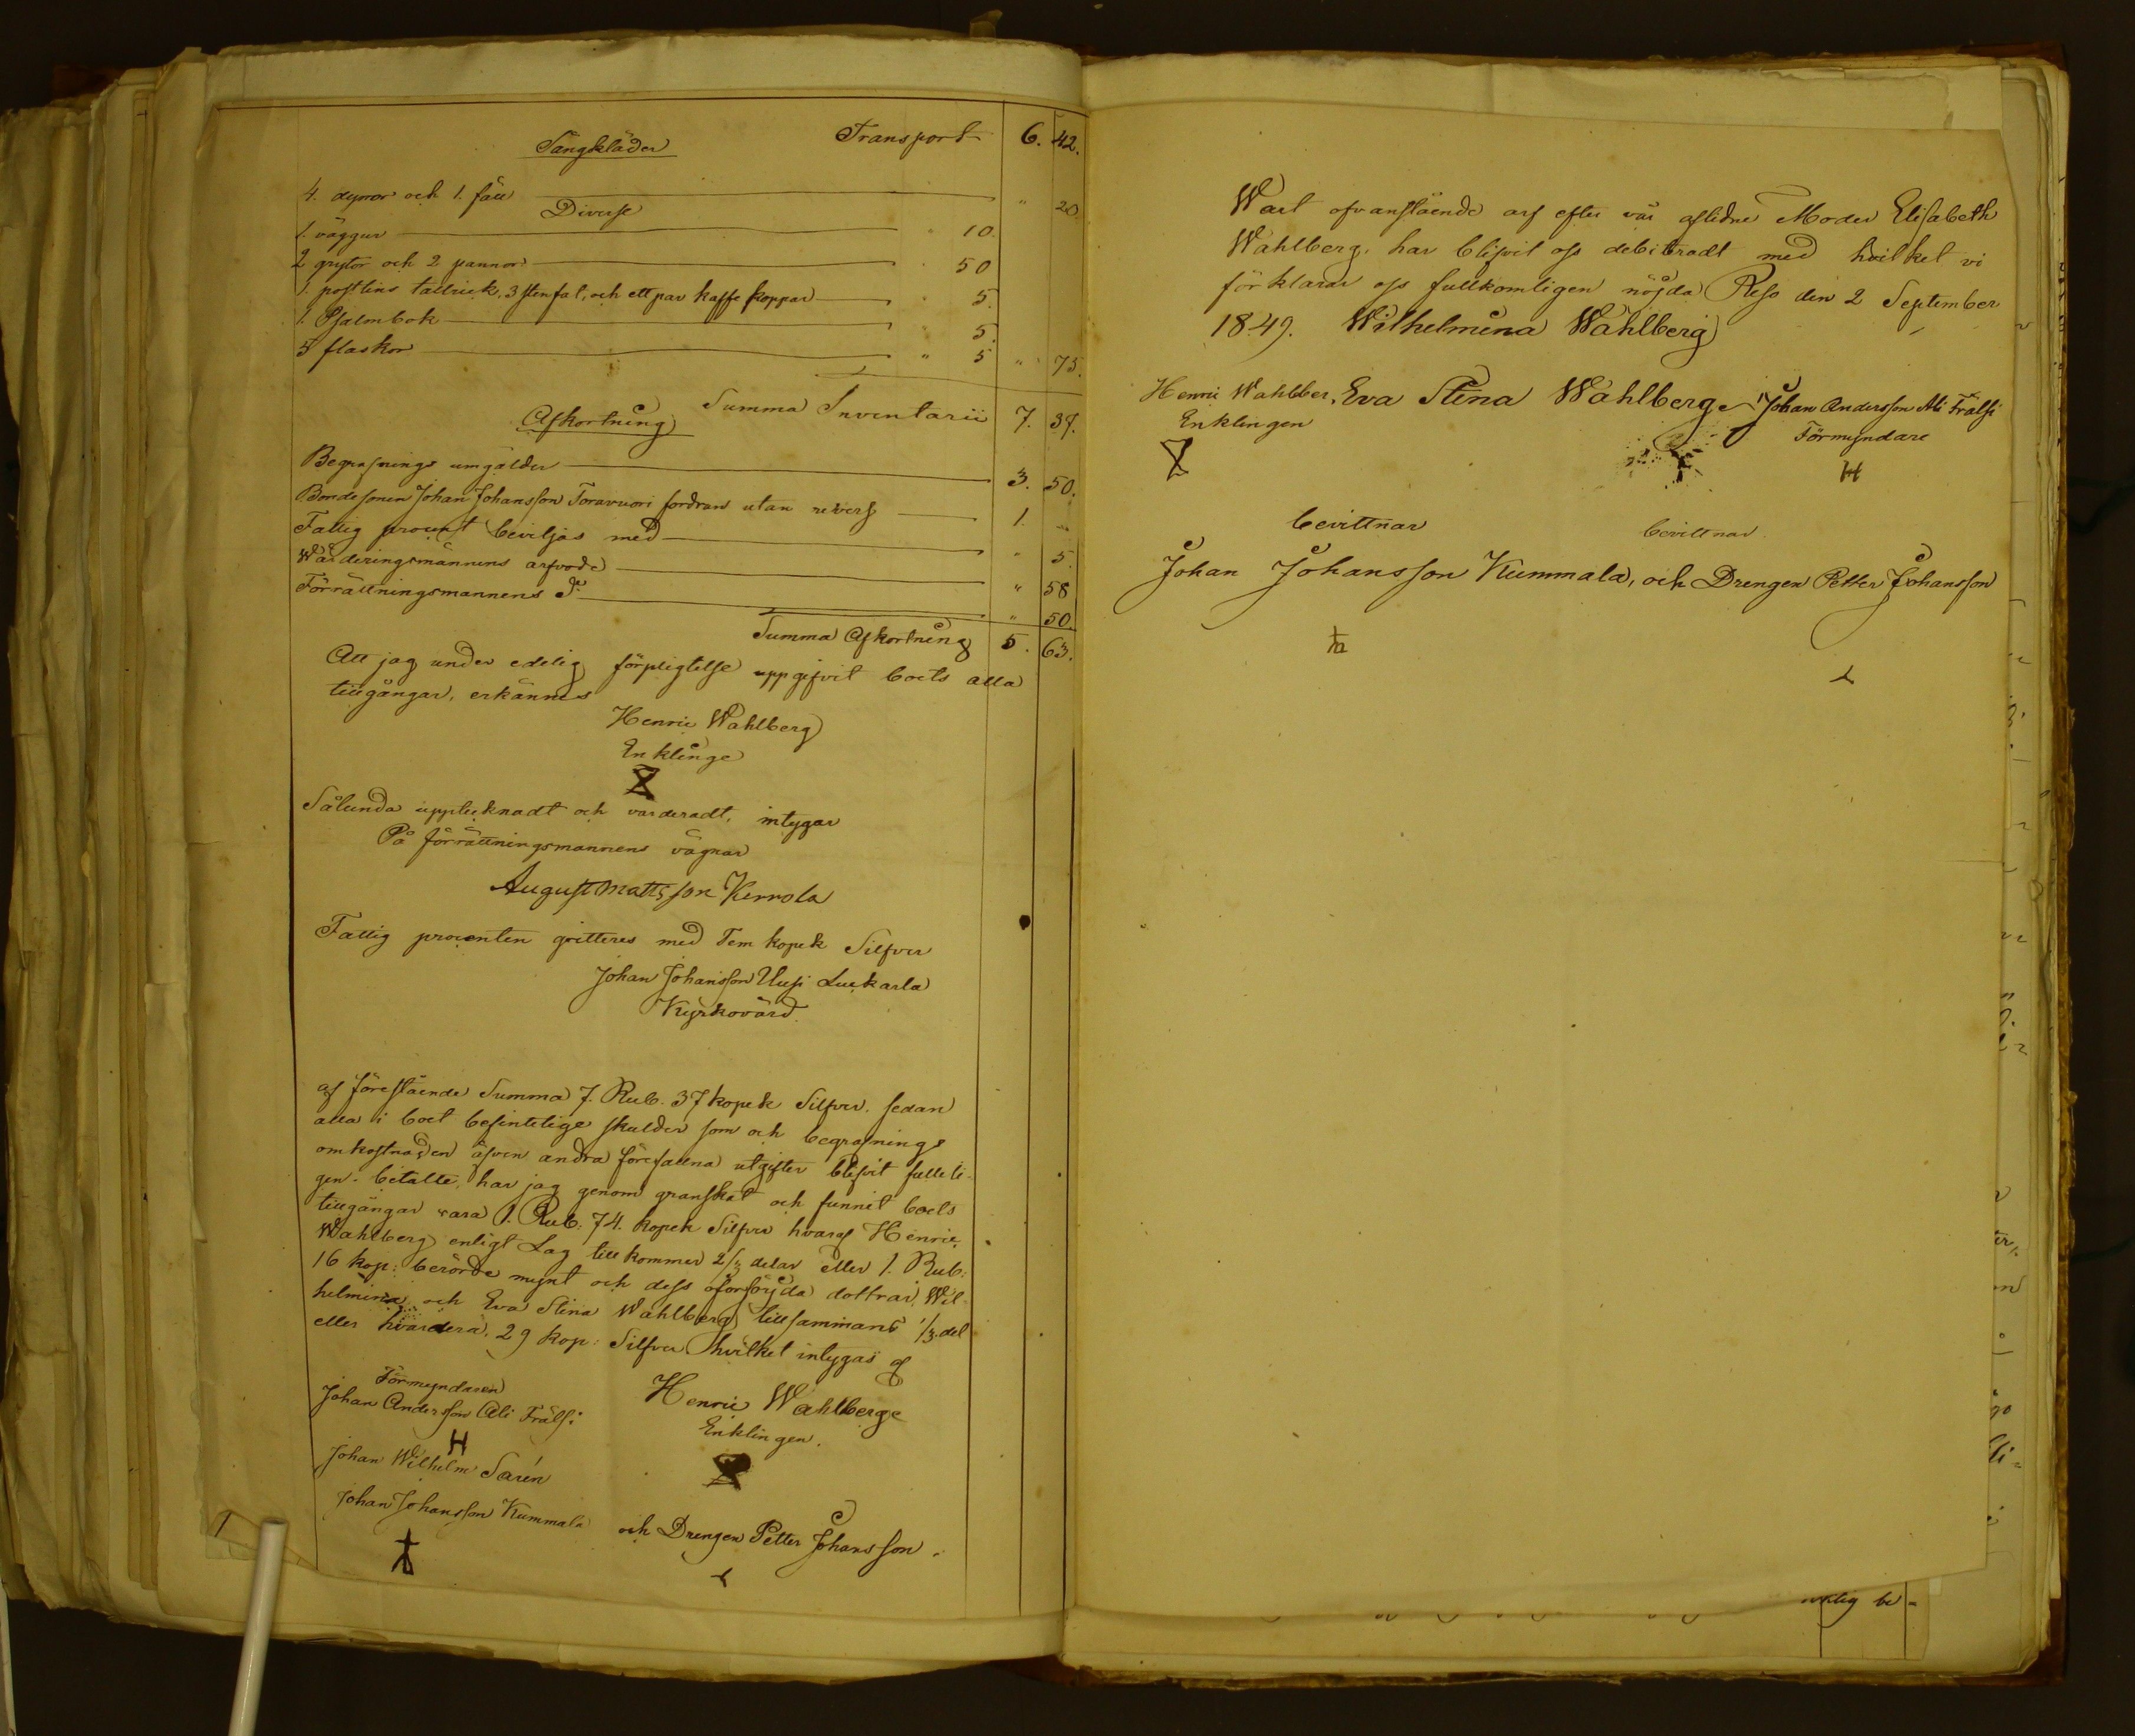 Sängkläder Transport 6. 42.
4. dynor och 1. fäll " 20
Diverse
1. väggur 10.
2 grytor och 2 pannor 50
1. postlins tallrick, 3 stenfat, och ett par kaffe koppar 5.
1. Psalmbok 5.
5 flaskor " 5 " 75.
Summa Inventarii 7. 37.
Afkortning
Begrafnings umgälder 3. 50.
Bondesonen Johan Johansson Toravuori fordran utan revers 1. "
Fattig procent beviljas med " 5.
Wärderingsmännens arfvode " 58
Förrättningsmannens do " 50
Summa Afkortning 5. 63.
Att jag under edelig förpligtelse uppgifvit boets alla
tillgångar, erkännes
Henric Wahlberg
Enklinge
Sålunda upptecknadt och värderadt, intygar
På förrättningsmannens vägnar
August Mattsson Kerrola
Fattig procenten qvitteras med Fem kopek Silfver
Johan Johansson Uusi Luckarla
Kyrkovärd.
af förestående Summa 7. Rub. 37 kopek Silfver. sedan
alla i boet befintelige skulder som och begrafnings
omkostnaden äfven andra förefallna utgifter blifvit fulleli-
gen betalte, har jag genom granskat och funnit boets
tillgångar vara 1. Rub: 74. kopek Silfver hvaraf Henric
Wahlberg enligt Lag tillkommer 2/3 delar eller 1. Rub:
16 kop: berörde mynt och dess oförsöjda dottrar, Wil-
helmina och Eva Stina Wahlberg tillsammans 1/3 del
eller hvardera. 29 kop: Silfver hvilket intygas af
Förmyndaren
Johan Andersson Ali Frälsi Henric Wahlberg
H Enklingen.
Johan Wilhelm Sarén
Johan Johansson Kummala och Drengen Petter Johansson.
Wart ofvanstående arf efter vår aflidne Moder Elisabeth
Wahlberg, har blifvit oss debiteradt med hvilket vi
förklarar oss fullkomligen nöjda Reso den 2 September
1849. Wilhelmina Wahlberg
Henric Wahlber, Eva Stina Wahlberg Johan Andersson Ali Frälsi
Enklingen Förmyndare
H
bevittnar bevittnar.
Johan Johansson Kummala, och Drengen Petter Johansson